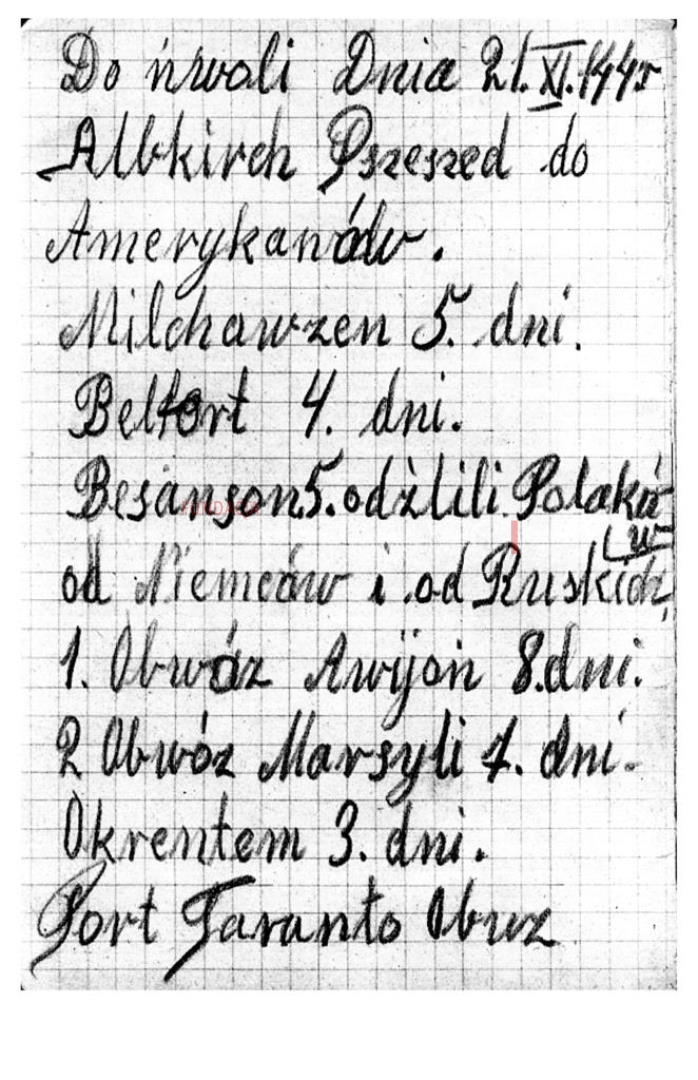 Do ńwoli Dnia 21.XI.144r
Albkirch Pszeszed do
Amerykanów.
Milchawzen 5. dni.
Belfort 4. dni.
Besanson 5. odźlili Polaków
od Niemców i od Ruskich,
1. Obwóz Awijoń 8.dni.
2 Obwóz Marsyli 1. dni.
Okrentem 3. dni.
Port Taranto Obuz